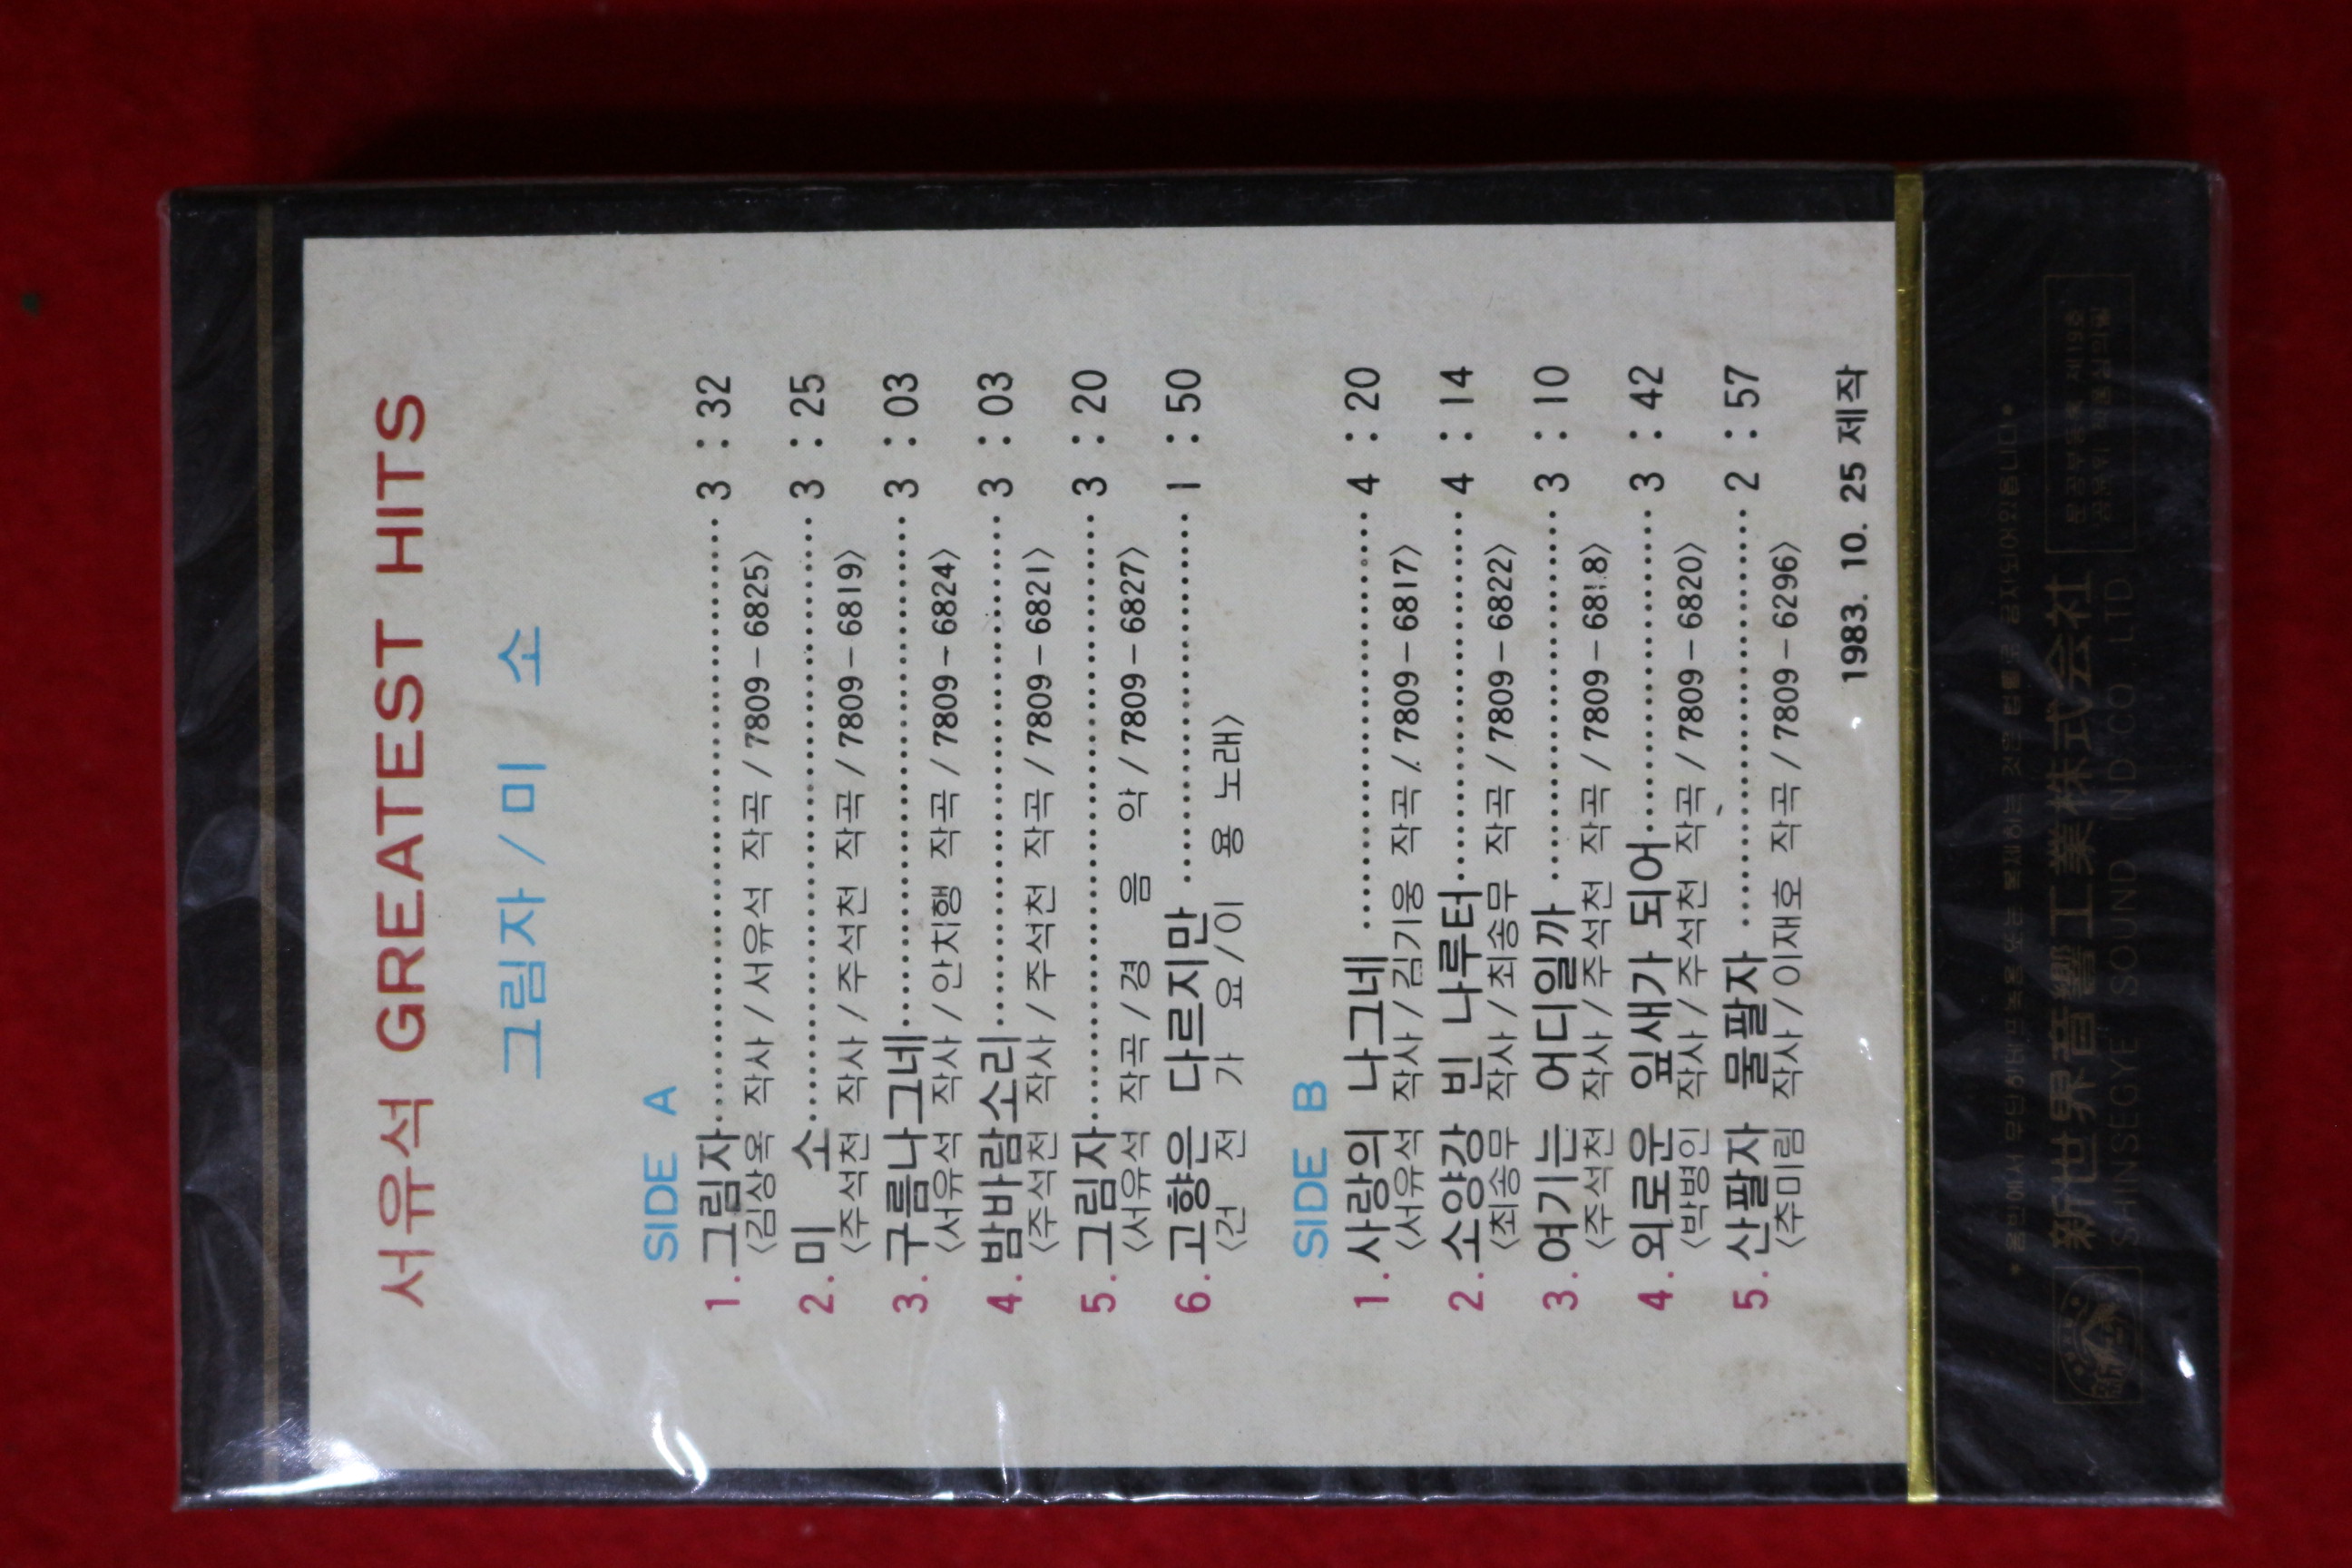 서유석 GREATEST HITS
그림자 / 미 소
SIDE A
1. 그림자 3 : 32
〈김상옥 작사 / 서유석 작곡 / 7809-6825〉
2. 미 소 3 : 25
〈주석천 작사 / 주석천 작곡 / 7809-6819〉
3. 구름나그네 3 : 03
〈서유석 작사 / 안치행 작곡 / 7809-6824〉
4. 밤바람소리 3 : 03
〈주석천 작사 / 주석천 작곡 / 7809-6821〉
5. 그림자 3 : 20
〈서유석 작곡 / 경 음 악 / 7809-6827〉
6. 고향은 다르지만 1 : 50
〈건 전 가 요 / 이 용 노래〉
SIDE B
1. 사랑의 나그네 4 : 20
〈서유석 작사 / 김기웅 작곡 / 7809-6817〉
2. 소양강 빈 나루터 4 : 14
〈최송무 작사 / 최송무 작곡 / 7809-6822〉
3. 여기는 어디일까 3 : 10
〈주석천 작사 / 주석천 작곡 / 7809-6818〉
4. 외로운 잎새가 되어 3 : 42
〈박병인 작사 / 주석천 작곡 / 7809-6820〉
5. 산팔자 물팔자 2 : 57
〈추미림 작사 / 이재호 작곡 / 7809-6296〉
1983. 10. 25 제작
新世界音響工業株式会社
SHINSEGYE SOUND IND CO LTD